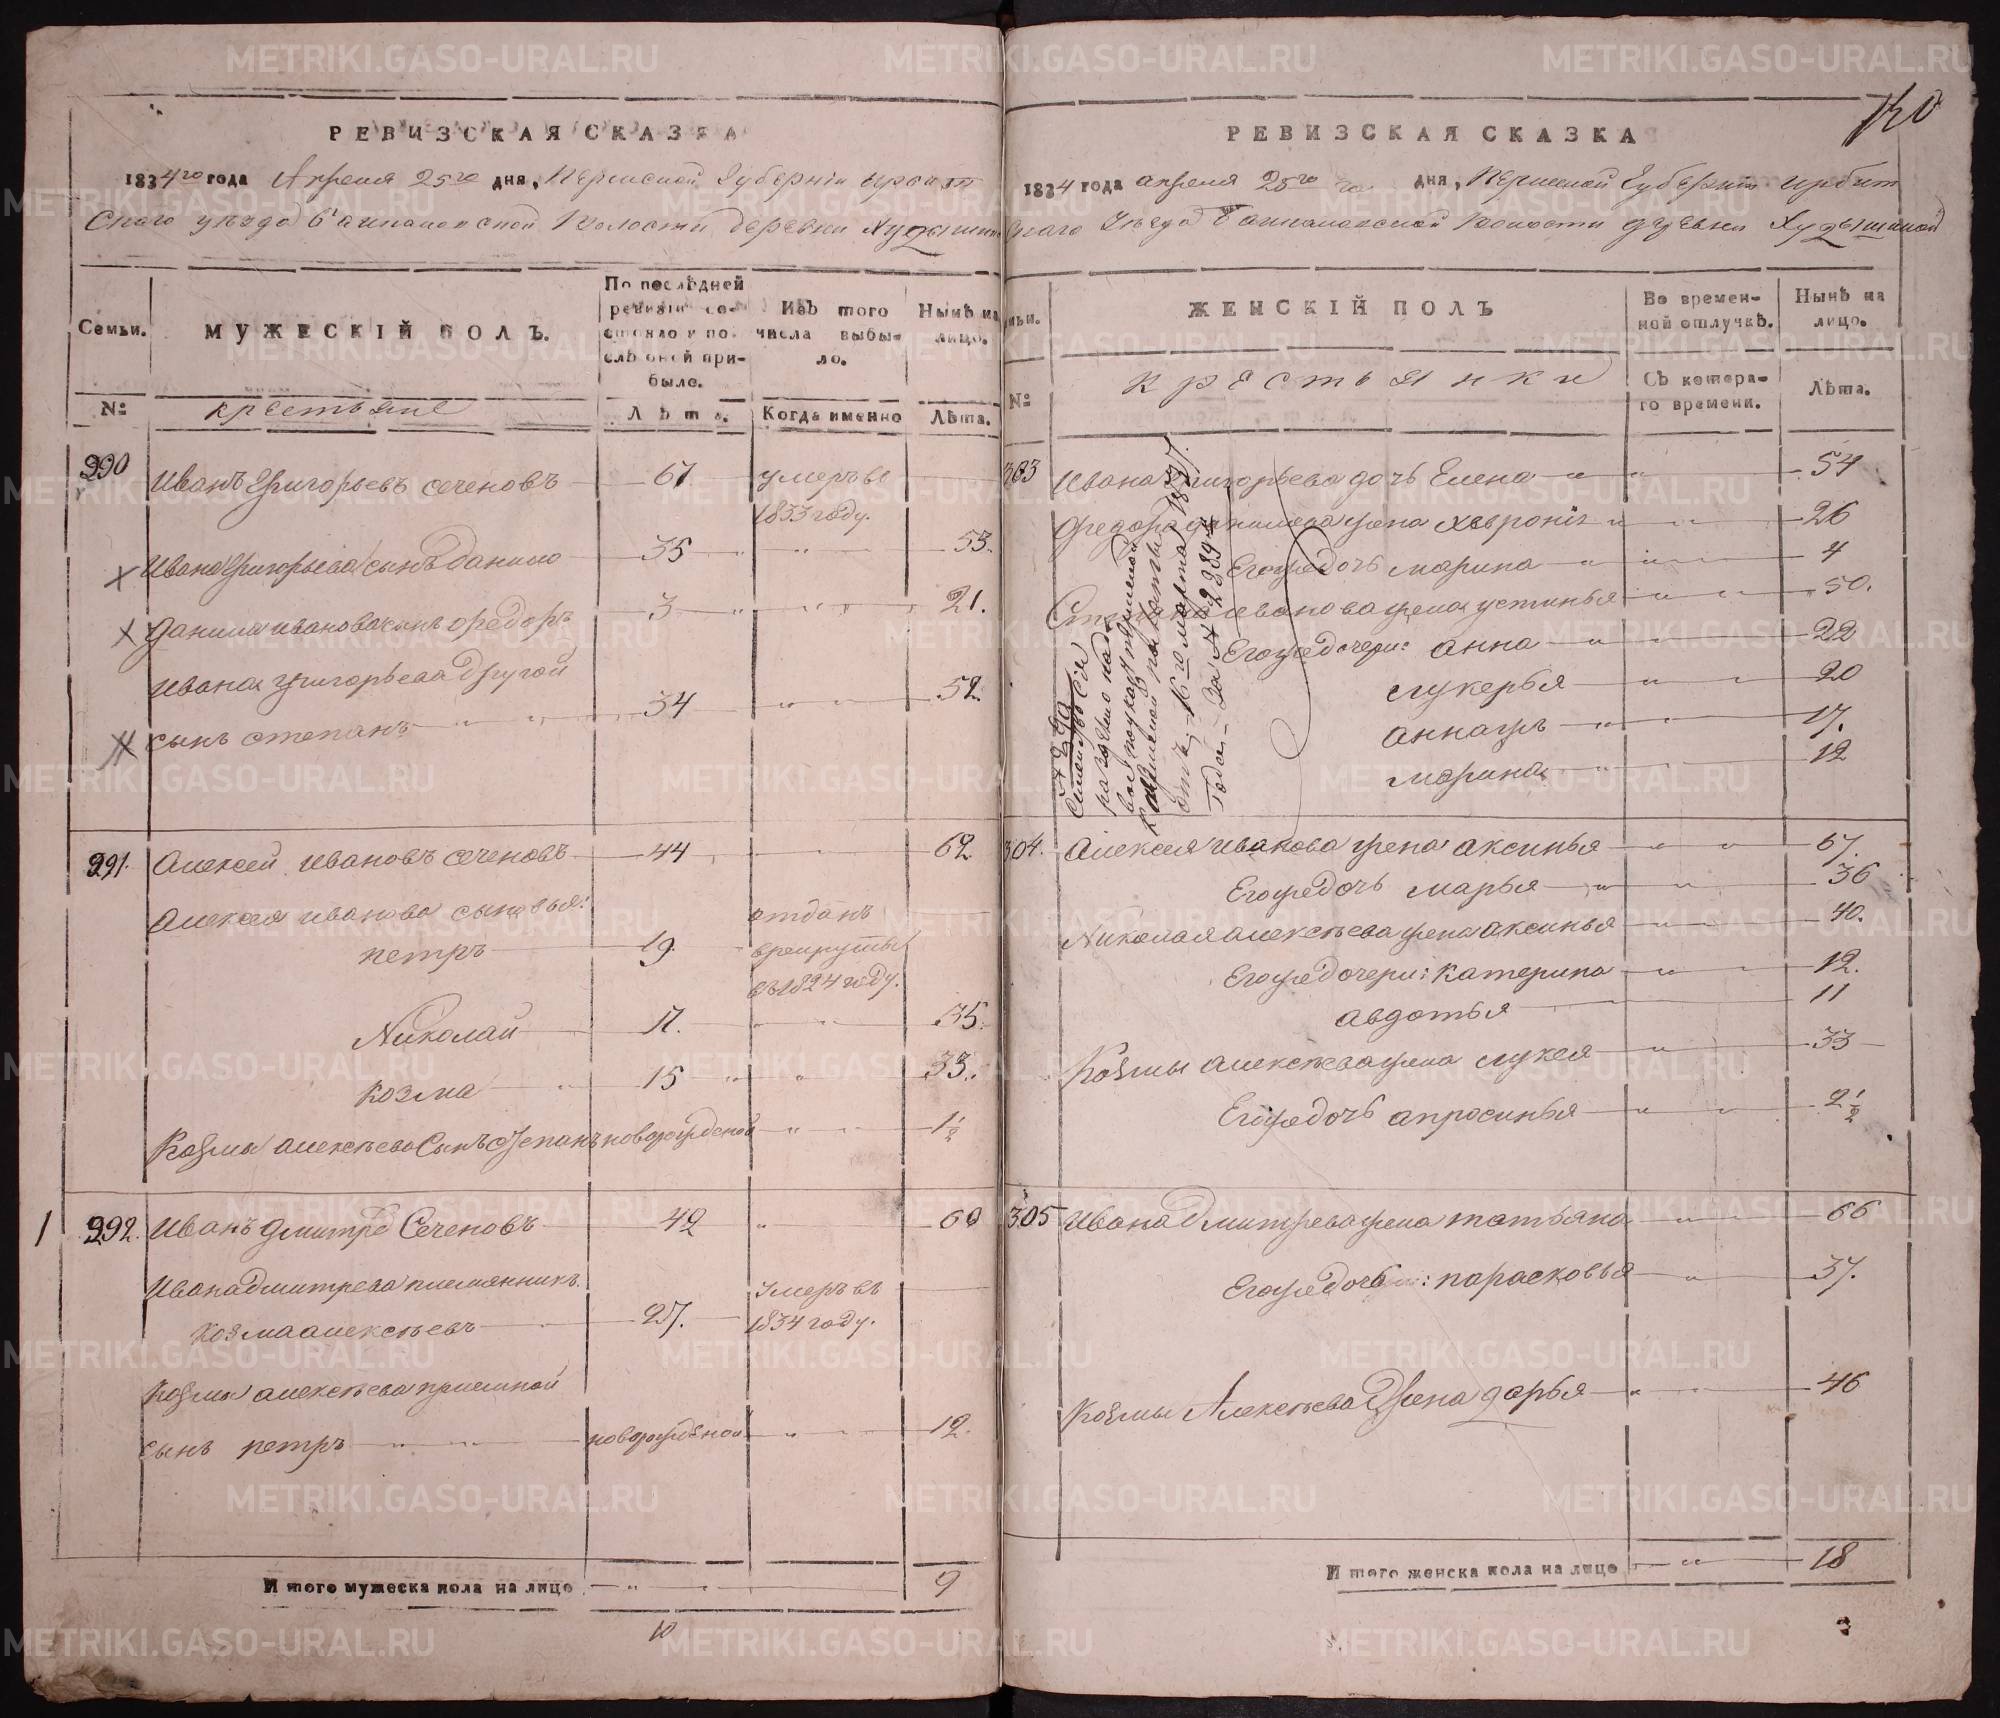 РЕВИЗСКАЯ СКАЗКА
1834го года Апреля 25го дня, Пермской Губернiи Ирбит
Скаго уѣзда Волости деревни
Семьи.
МУЖЕСКІЙ ПОЛЪ.
По послѣдней ревизіи состояло и послѣ оной прибыло.
Изъ того числа выбыло.
Нынѣ на лицо.
№
крестьяне
Лѣта.
Когда именно
Лѣта.
290
Иванъ Григорьевъ Сеченовъ 67 умеръ въ
1833 году.
Ивана Григорьева сынъ Данило 35 53
Данила Иванова сынъ Федоръ 3 21.
Ивана Григорьева другой
сынъ Степанъ 34 52
291.
Алексей Ивановъ Сеченовъ 44 62
Алексея Иванова сыновья: отданъ
Петръ 19 в рекруты
въ 1824 году.
Николай 17. 35.
Козма 15 33.
Козмы Алексѣева сынъ Степанъ новорожденой 1 1/2
1 292.
Иванъ Дмитрев Сеченовъ 42 60
Ивана Дмитрева племянникъ Умеръ въ
Козма Алексѣевъ 27. 1834 году.
Козмы Алексѣева приемной
сынъ Петръ новорожденой 12.
Итого мужеска пола на лицо 9
10
РЕВИЗСКАЯ СКАЗКА
1834 года апреля 25го дня, Пермской Губернiи Ирбит
скаго Уѣзда Волости деревни
ЖЕНСКІЙ ПОЛЪ
Во временной отлучкѣ.
Нынѣ на лицо.
№
крестьянки
Съ котораго времени.
Лѣта.
303
Ивана Григорьева дочь Елена 54
Федора Данилова жена Хаврония 26
Егожедочь Марина 4
Степана Иванова жена Устинья 50.
Егожедочери: Анна 22
Лукерья 20
Анна жъ 17.
Марина 12
№ 290
Семейство сiя
разделено
16го марта 1837.
Года за № 2389м
304.
Алексея Иванова жена Аксинья 67.
Егожедочь Марья 36
Николая Алексѣева жена Аксинья 40.
Егожедочери: Катерина 12.
Авдотья 11
Козмы Алексѣева жена Лукея 33
Егожедочь Апросинья 2 1/2
305
Ивана Дмитрева жена Татьяна 66
Егожедочь: Парасковья 37.
Козмы Алексѣева Жена Дарья 46
Итого женска пола на лицо 18
METRIKI.GASO-URAL.RU